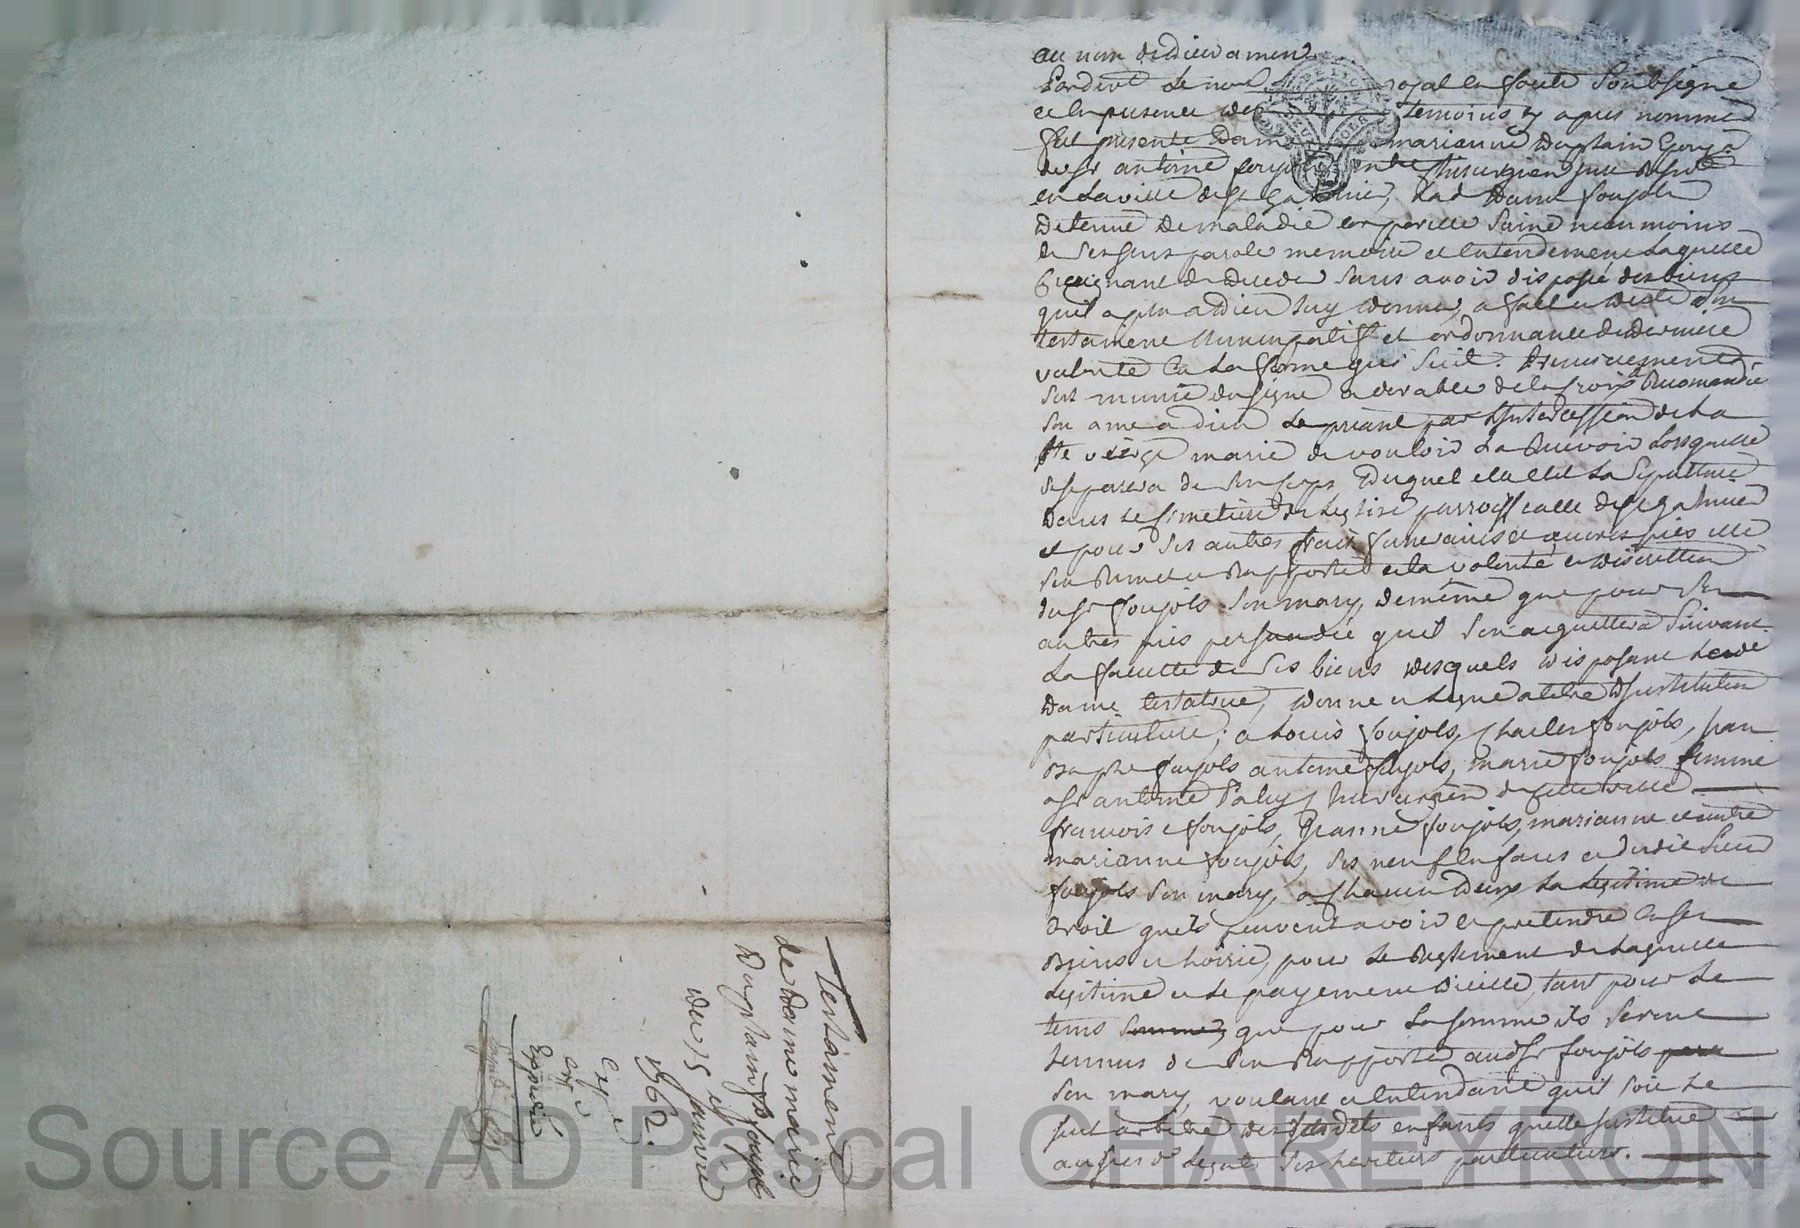 au nom de dieu amen
Pardevt le not royal en foute soubsigné
et en presence des temoins cy apres nommes
fut presente Dame marianne Duplain Epouze
de sr antoine foujols chirurgien juré
en la ville de st galmier, lad dame foujols
detenue de maladie corporelle saine neanmoins
de ses sens parole memoire et entendement laquelle
Craignant de deceder sans avoir disposé des biens
quil a plu a dieu luy donner, a fait et dicté son
testament nuncupatif et ordonnance de derniere
volonté en la forme qui suit. Premierement
sest munie du signe venerable de la croix a recomandé
son ame a dieu le priant par lintercession de la
ste vierge marie de vouloir la recevoir lorsquelle
se separera de son corps duquel elle elit la sepulture
dans le simetiere de leglise parroissialle de st galmier
et pour ses autres frais funeraires et œuvres pies elle
sen remet et rapporte a la volonté et discretion
du sr foujols son mary, de même que pour ses
autres pies persuadée quil sen acquittera suivant
la faculté de ses biens desquels disposant lade
dame testatrice, donne et legue a titre dinstitution
particuliere, a Louis foujols, Charles foujols, jean
baptte foujols antoine foujols, marie foujols femme
a sr antoine Paley chirurgien de cette ville
francoise foujols, Jeanne foujols, marianne et autre
marianne foujols, ses neuf enfans et dudit sieur
foujols son mary, a chacun deux la legitime de
droit quils peuvent avoir et pretendre en ses
biens et hoirie, pour le reglement de laquelle
legitime et le payement dicelle, tant pour le
tems que pour la somme ils seront
tenus de sen rapporter audt sr foujols
son mary, voulant et entendant quil soit le
seul arbitre desdits enfants quelle institue
au susd legat ses heritiers particuliers.
Testament
de dame marie
Duplain fe foujols
du 15 janvier
1762.
Exp